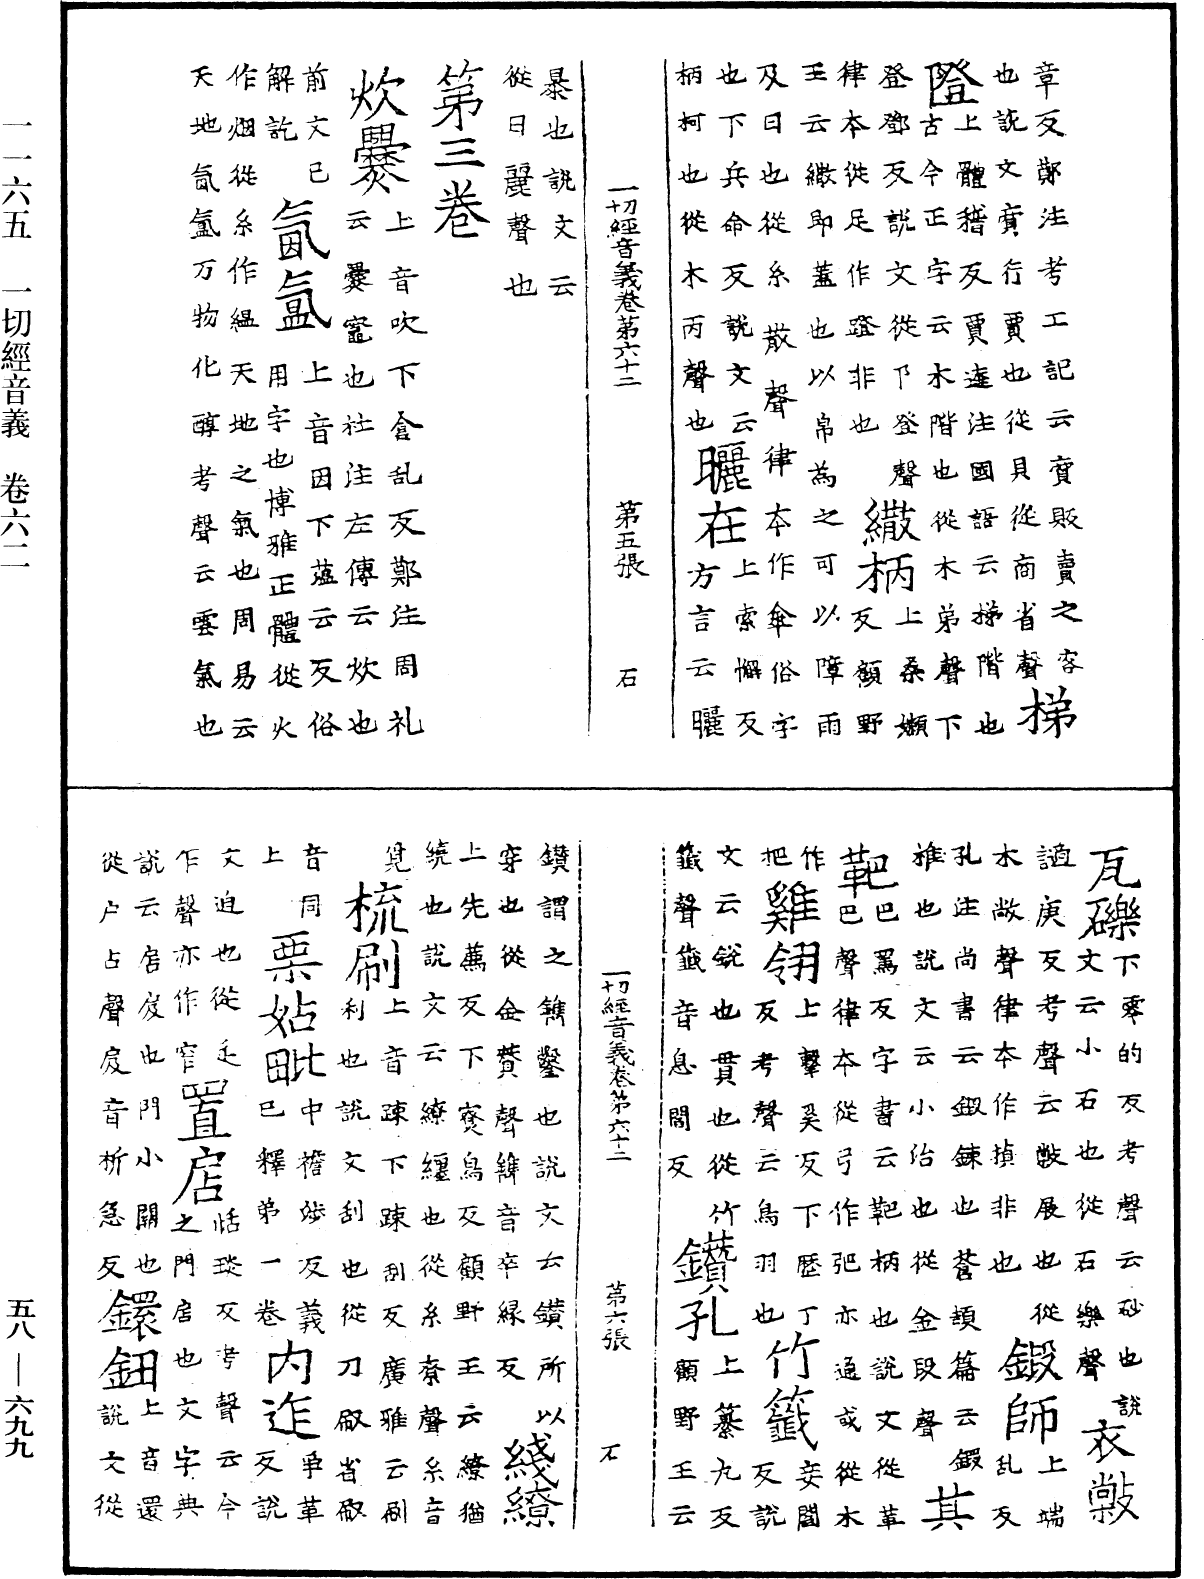 章反鄭注考工記云賨販賣之客
也說文賨行賈也從貝從商省聲
梯隥上體稽反賈逵注國語云梯階也
古今正字云木階也從木弟聲下
登鄧反說文從阝登聲
律本從足作蹬非也
繖柄上桑嬾反顧野
王云繖即蓋也以帛為之可以障雨
及日也從糸散聲律本作傘俗字
也下兵命反說文云
柄柯也從木丙聲也
曬在上索懈反
方言云曬
暴也說文云
從日麗聲也
第三卷
炊爨上音吹下倉乱反鄭注周礼
云爨竈也杜注左傳云炊也
前文已
解訖
氤氳上音因下蒀云反俗
用字也博雅正體從火
作烟從糸作緼天地之氣也周易云
天地氤氳万物化醇考聲云雲氣也
一切經音義卷第六十二 第五張 石
瓦礫下零的反考聲云砂也說
文云小石也從石樂聲
衣敱
謫庚反考聲云敱展也從
木敞聲律本作揁非也
鍛師上端乱反
孔注尚書云鍛鍊也蒼頡篇云鍜
椎也說文云小冶也從金段聲
其靶巴罵反字書云靶柄也說文從革
巴聲律本從弓作弝亦通或從木
作杷
雞翎上擊奚反下歷丁
反考聲云鳥羽也
竹籤妾閻反說
文云銳也貫也從竹
籤聲籤音息閻反
鑽孔上纂九反
顧野王云
鑽謂之鐫鑿也說文云鑽所以
穿也從金贊聲鐫音卒緣反
綫繚
上先薦反下寮鳥反顧野王云繚猶
繞也說文云繚纏也從糸尞聲糸音
覓
梳刷上音踈下踈刮反廣雅云刷
利也說文刮也從刀㕞省㕞
音同
上
栗姑毗中襜涉反義
已釋弟一卷
內迮爭革
反說
文迫也從辵
乍聲亦作窄
置㞟恬琰反考聲云今
之門㞟也文字典
說云㞟扂也門小關也
從户占聲扂音析急反
鐶鈕上音還
說文從
一切經音義卷第六十二 第六張 石
一一六五 一切經音義 卷六二
五八—六九九